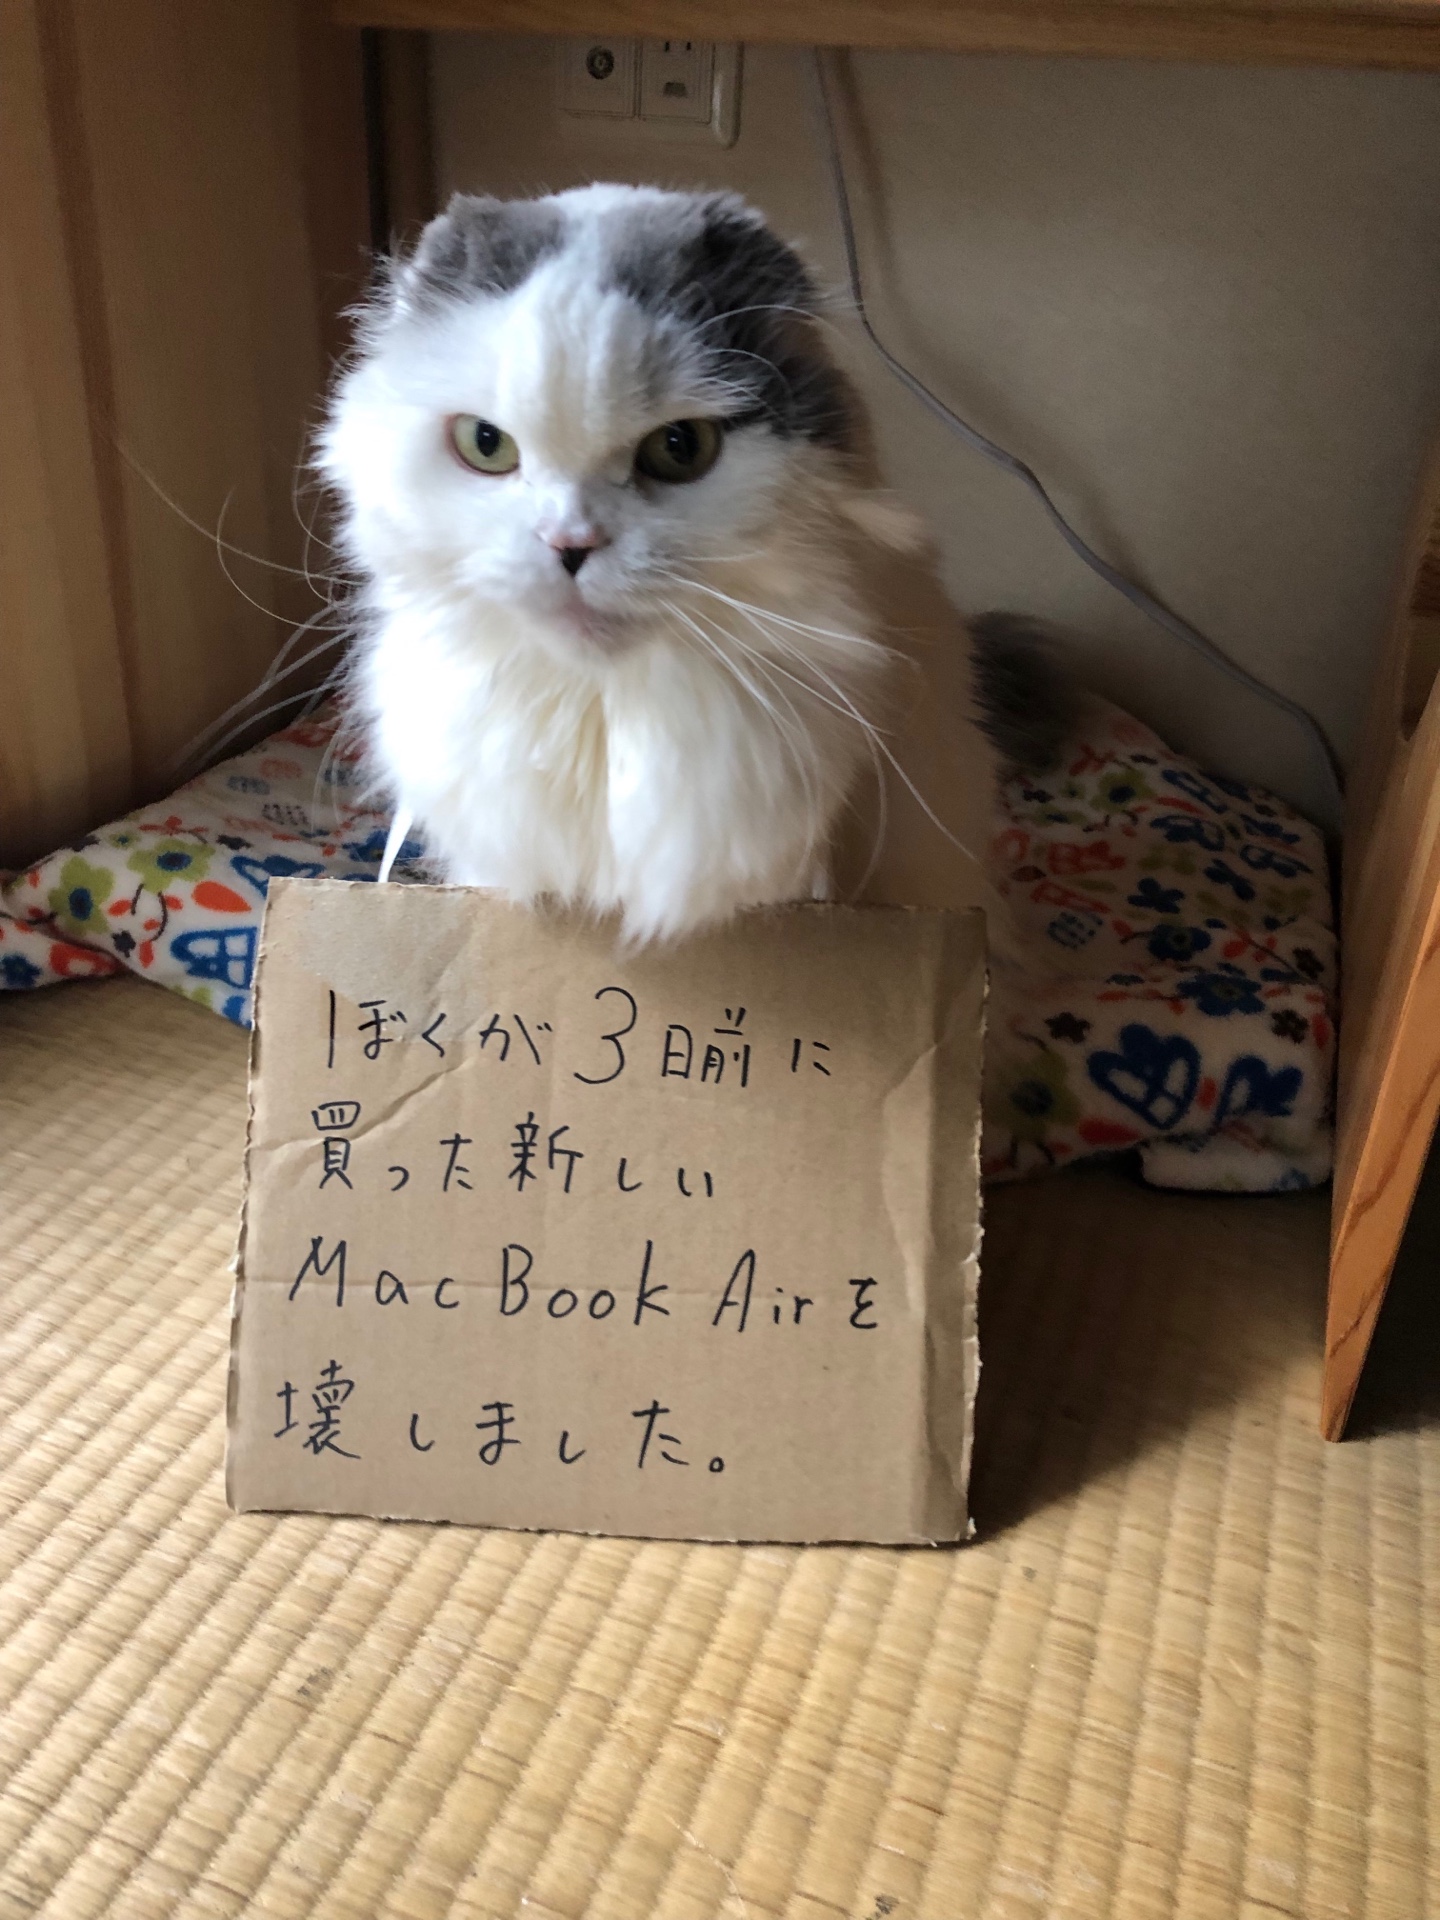 ぼくが3日前に
買った新しい
MacBook Airを
壊しました。